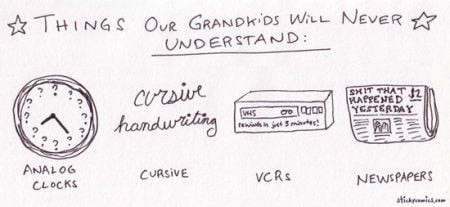 ☆ THINGS OUR GRANDKIDS WILL NEVER ☆
UNDERSTAND:
? ? ? ? ? ? ? ? ? ? ? ?
cursive
handwriting
VHS
rewinds in just 5 minutes!
SHIT THAT $2
HAPPENED
YESTERDAY
ANALOG
CLOCKS
CURSIVE
VCRs
NEWSPAPERS
stickycomics.com